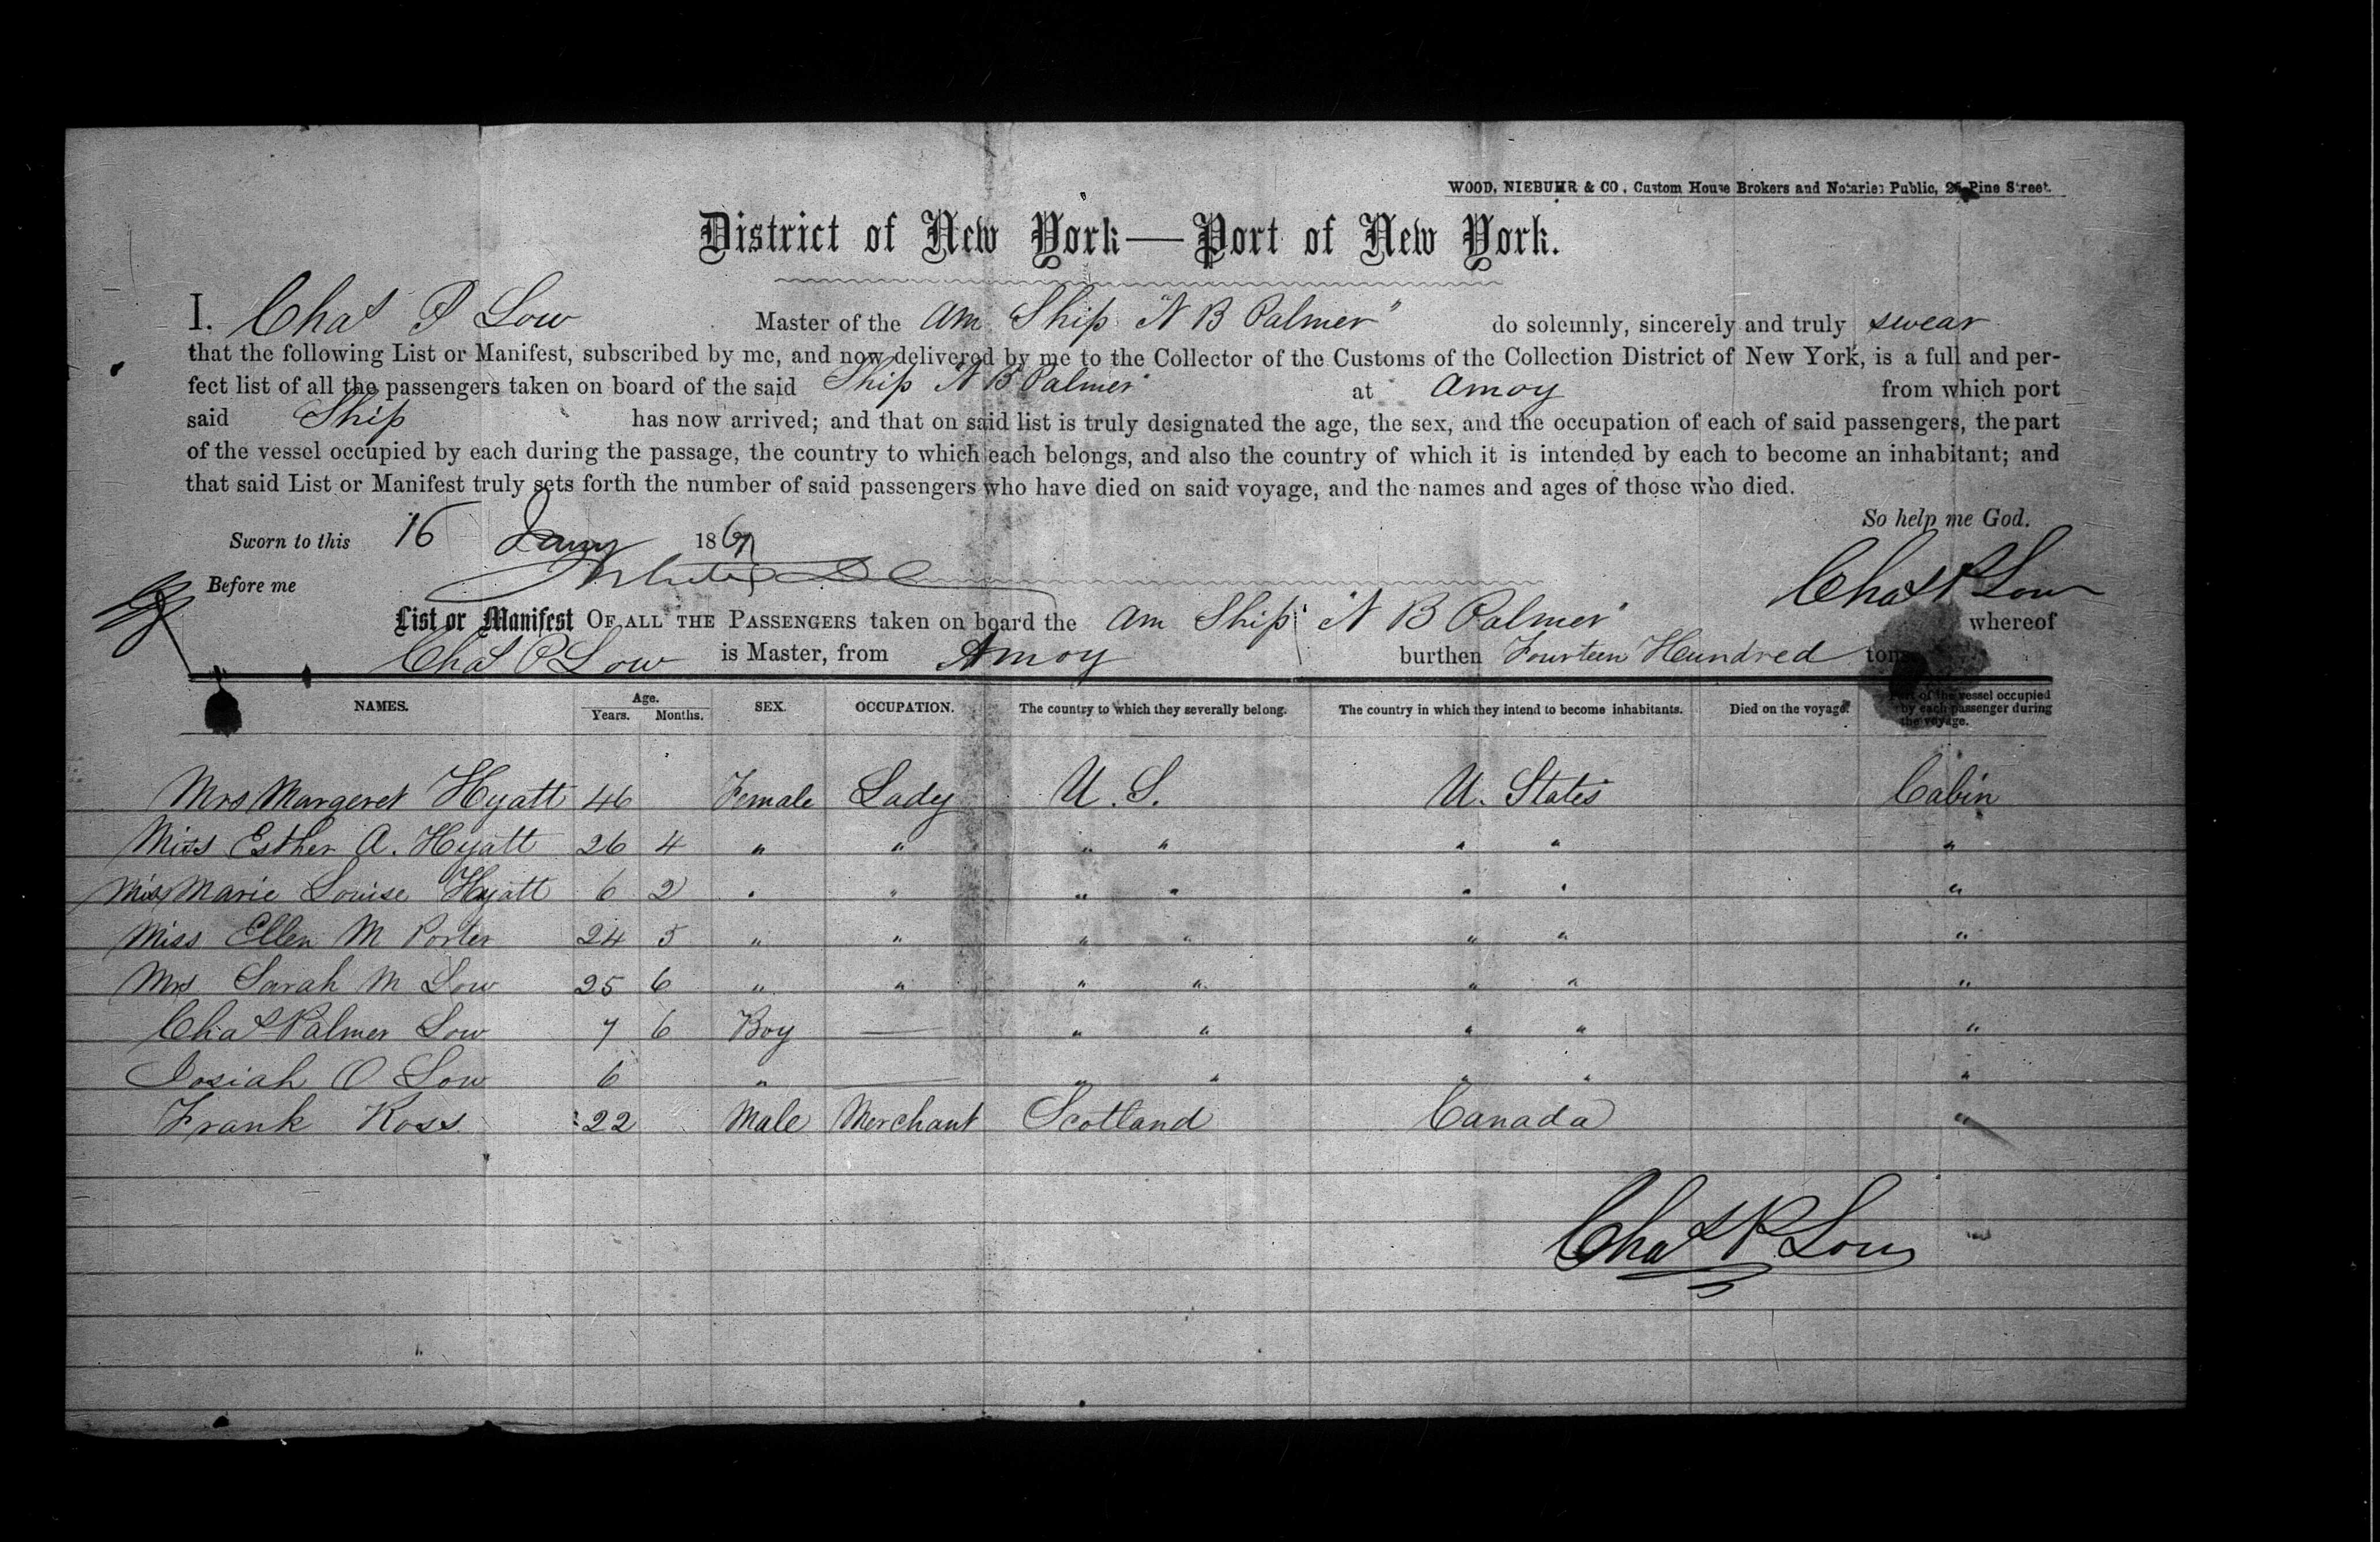 WOOD, NIEBUHR & CO, Custom House Brokers and Notaries Public, 26 Pine Street.
District of New York — Port of New York.
I. Chas P Low Master of the Am Ship "N B Palmer" do solemnly, sincerely and truly swear
that the following List or Manifest, subscribed by me, and now delivered by me to the Collector of the Customs of the Collection District of New York, is a full and per-
fect list of all the passengers taken on board of the said Ship "N B Palmer" at Amoy from which port
said Ship has now arrived; and that on said list is truly designated the age, the sex, and the occupation of each of said passengers, the part
of the vessel occupied by each during the passage, the country to which each belongs, and also the country of which it is intended by each to become an inhabitant; and
that said List or Manifest truly sets forth the number of said passengers who have died on said voyage, and the names and ages of those who died.
So help me God.
Sworn to this 16 Jany 1867
Before me
Chas P Low
List or Manifest OF ALL THE PASSENGERS taken on board the Am Ship "N B Palmer" whereof
Chas P Low is Master, from Amoy burthen Fourteen Hundred tons
NAMES. Age. Years. Months. SEX. OCCUPATION. The country to which they severally belong. The country in which they intend to become inhabitants. Died on the voyage. Part of the vessel occupied by each passenger during the voyage.
Mrs Margeret Hyatt 46 Female Lady U. S. U. States Cabin
Miss Esther A. Hyatt 26 4 " " " " " " "
Miss Marie Louise Hyatt 6 2 " " " " " " "
Miss Ellen M Porter 24 5 " " " " " " "
Mrs Sarah M Low 25 6 " " " " " " "
Chas Palmer Low 7 6 Boy — " " " " "
Josiah O Low 6 " — " " " " "
Frank Ross 22 Male Merchant Scotland Canada "
Chas P Low